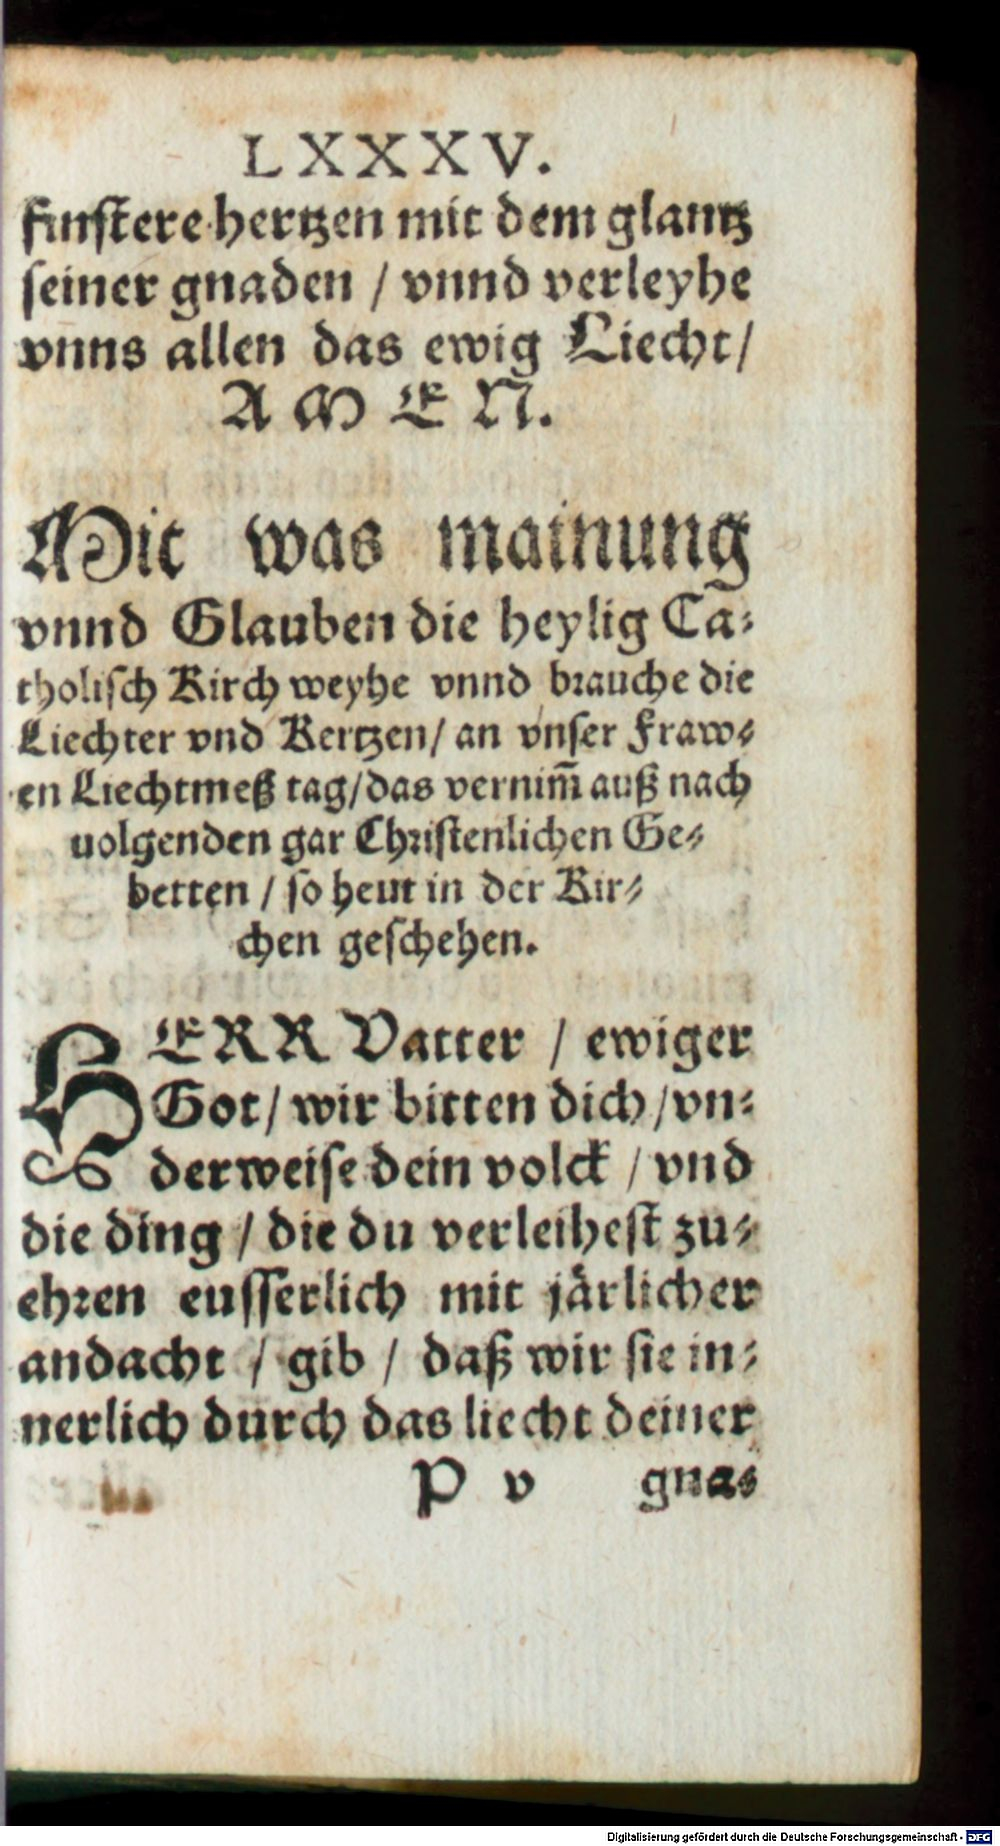 LXXXV.
finstere hertzen mit dem glantz
seiner gnaden / vnnd verleyhe
vnns allen das ewig Liecht /
AMEN.
Mit was mainung
vnnd Glauben die heylig Ca⸗
tholisch Kirch weyhe vnnd brauche die
Liechter vnd Kertzen / an vnser Fraw⸗
en Liechtmeß tag / das vernim̃ auß nach
uolgenden gar Christenlichen Ge⸗
betten / so heut in der Kir⸗
chen geschehen.
HERR Vatter / ewiger
Got / wir bitten dich / vn⸗
derweise dein volck / vnd
die ding / die du verleihest zu⸗
ehren eusserlich mit järlicher
andacht / gib / daß wir sie in⸗
nerlich durch das liecht deiner
P v gna⸗
Digitalisierung gefördert durch die Deutsche Forschungsgemeinschaft - DFG